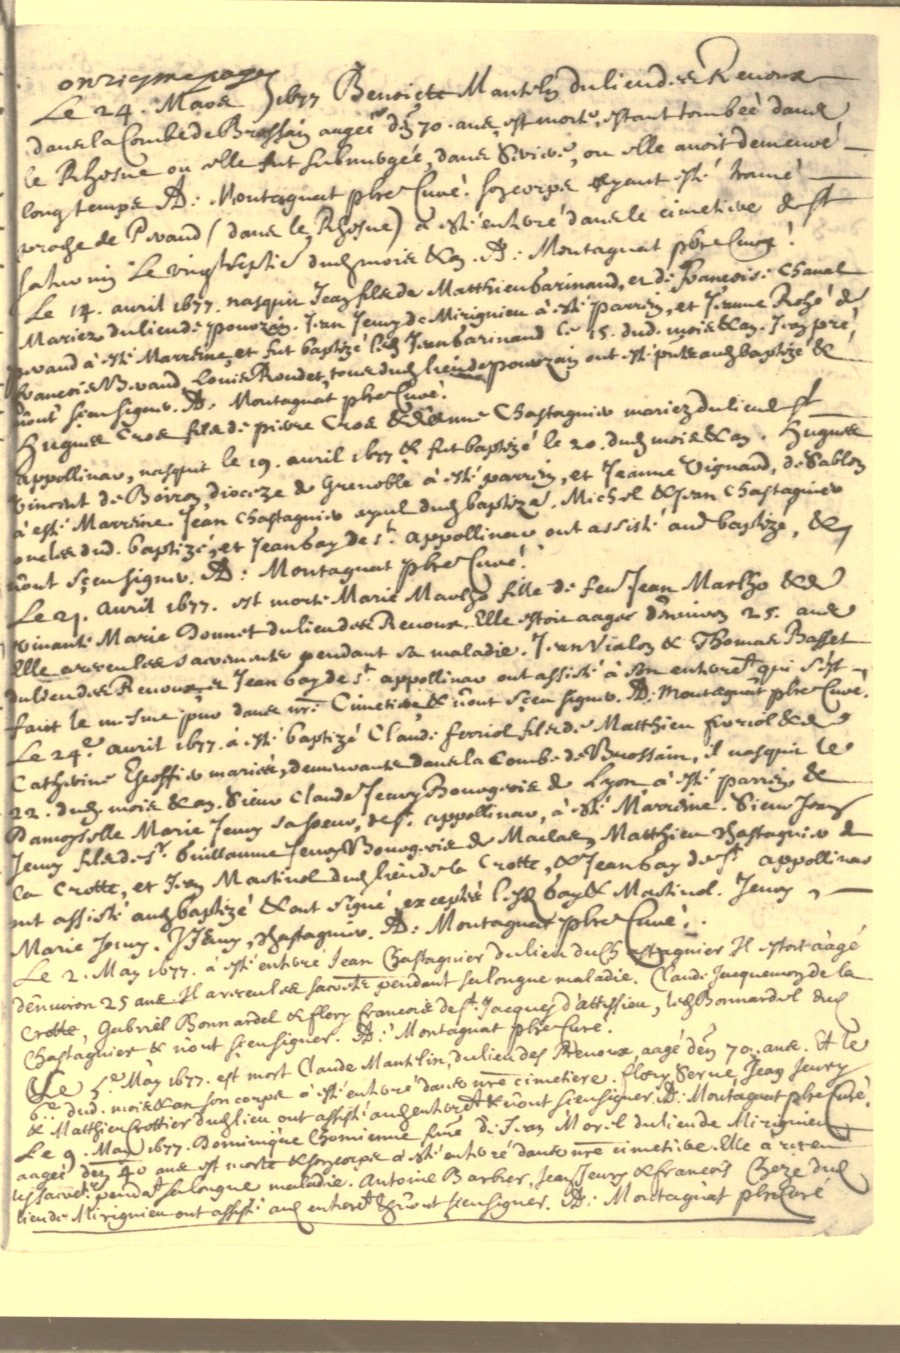 onziesme page
Le 24. Mars 1677 Benoiste Mantelin du lieu des Renoux
dans la Combe de Brossain aagée d'en 70. ans, est morte, estant tombée dans
le Rhosne ou elle fut submergée, dans Servive, ou elle avoit demeuré
long temps A: Montagnat pbre Curé. son corps ayant esté trouvé
proche de Peraud (dans le Rhosne) à esté enterré dans le cimetiere de St
Saturnin Le vingt septie dud mois & an. A: Montagnat pbre Curé.
Le 14. avril 1677. nasquit Jean fils de Matthieu barinaud, et de françoise Chaval
Mariez du lieu de pourzin. Jean Jeury de Mirignieu à esté parrein, et Jeanne Roché de
peraud à esté Marreine, et fut baptizé led Jean barinaud le 15. dud. mois & an. Jean pré,
françois Beraud, Louis Roudet, tous dud lieu de pourzain ont esté pnts aud baptizé &
n'ont sceu signer. A. Montagnat pbre Curé.
Hugues Cros fils de pierre Cros & d'Anne Chastagnier mariez du lieu de St
Appollinar, nasquit le 19. avril 1677 & fut baptizé le 20. dud mois & an. Hugues
Vincent de Boiron diocèze de Grenoble à esté parrein, et Jeanne Vignard, de Sablon
à esté Marreine. Jean Chastagnier ayeul dud baptizé, Michel & Jean Chastagnier
oncles dud. baptizé, et Jean bay de St. appollinar ont assisté aud baptizé, &
n'ont sceu signer. A: Montagnat pbre Curé.
Le 21. avril 1677. est morte Marie Marlho fille de feu Jean Marlho & de
vivante Marie Donnet du lieu des Renoux. Elle estoit aagée d'environ 25. ans
Elle a receu les sacrements pendant sa maladie. Jean Vialon & Thomas Basset
du lieu des Renoux et Jean bay de St. appollinar ont assisté à son enterremt qui s'est
faict le mesme jour dans nre Cimetiere & n'ont sceu signer. A: Montagnat pbre Curé.
Le 24e. avril 1677. à esté baptizé Claude ferriol fils de Matthieu ferriol & de
Catherine Geoffier mariés, demeurants dans la Combe de Brossain, il nasquit le
22. dud mois & an. Sieur Claude Jeury Bourgeois de Lyon, à esté parrein, &
Damoyselle Marie Jeury sa soeur, de St. appollinar, à esté Marreine. Sieur Jean
Jeury fils de Sr. Guillaume Jeury Bourgeois de Maclas, Matthieu Chastagnier de
la Crotte, et Jean Martinol dud lieu de la Crotte, & Jean bay de St appollinar
ont assisté aud baptizé & ont signé, exceptés lesd bay & Martinol. Jeury,
Marie Jeury. J Jeury, Chastagnier. A: Montagnat pbre Curé.
Le 2. May 1677. à esté enterré Jean Chastagnier du lieu du Chastagnier Il estoit aagé
d'environ 25 ans Il a receu les sacrets pendant sa longue maladie. Claude Jacquemon de la
Crotte, Gabriel Bonnardel & flory françois de St. Jacques d'attissieu, led Bonnardel dud
Chastagnier & n'ont sceu signer. A: Montagnat pbre Curé.
Le 5e May 1677. est mort Claude Mantelin, du lieu des Renoux, aagé d'en 70. ans. & le
6e. dud. mois & an son corps à esté enterré dans nre cimetiere. flory Serve, Jean Jeury
& Matthieu Crottier dud lieu ont assisté aud enterremt & n'ont sceu signer A. Montagnat pbre Curé.
Le 9. May 1677. Dominique Chomienne feme de Jean Morel du lieu de Mirignieu
aagée d'en 40 ans est morte & son corps à esté enterré dans nre cimetiere. Elle à receu
les sacrets. pendat sa longue maladie. Antoine Barbier, Jean Jeury & francois Cheze dud
lieu de Mirignieu ont assisté aud enterret & n'ont sceu signer. A: Montagnat pbre Curé